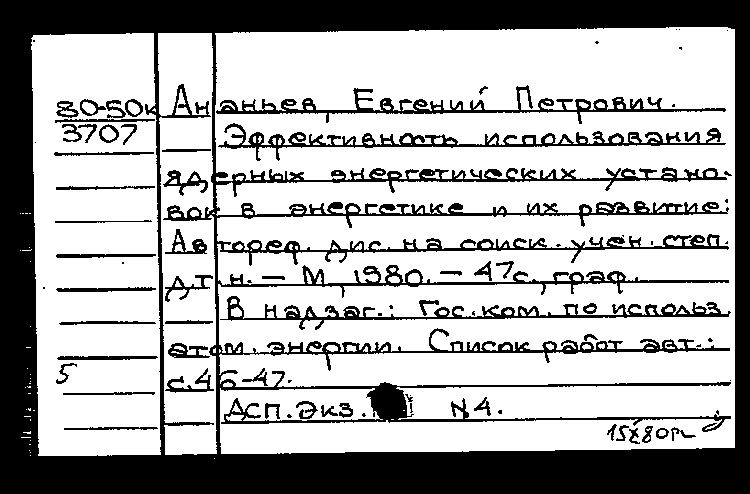 80-50к Ананьев, Евгений Петрович.
3707 Эффективность использования
ядерных энергетических устано-
вок в энергетике и их развитие:
Автореф. дис. на соиск. учен. степ.
д.т.н. - М., 1980. - 47с., граф.
В надзаг.: Гос. ком. по использ.
атом. энергии. Список работ авт.:
5 с.46-47.
Асп. Экз. N 4.